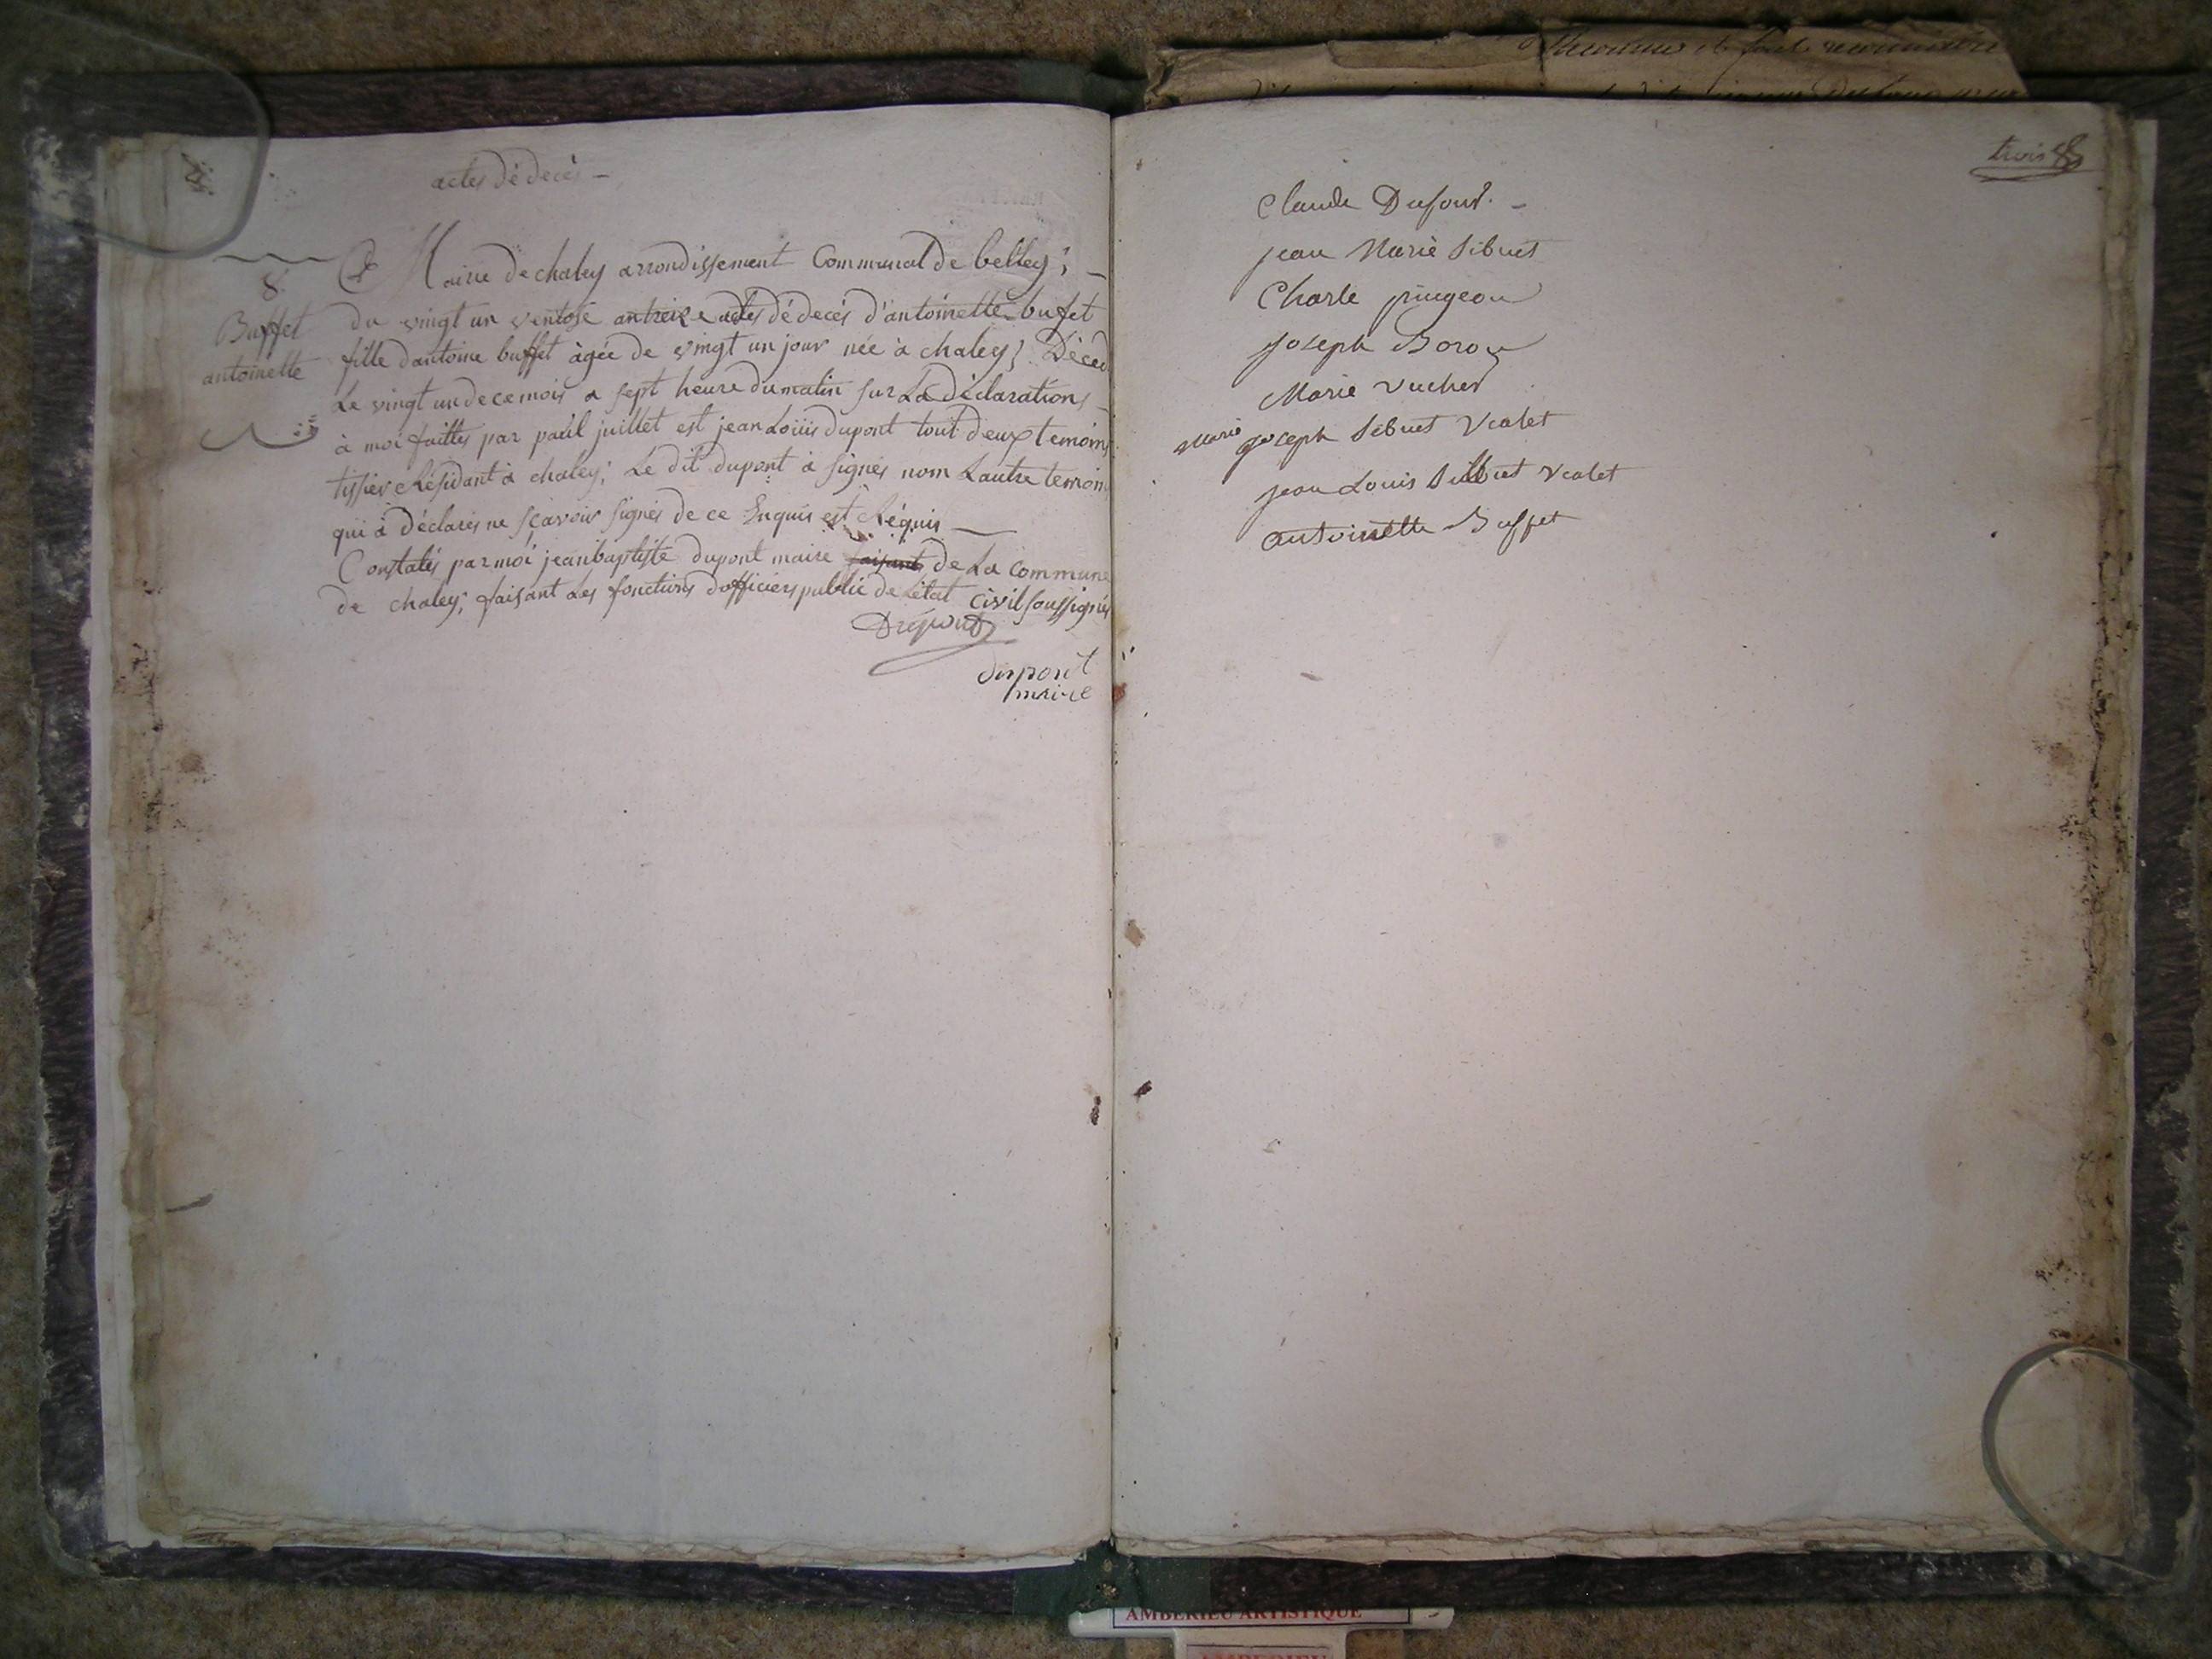 actes dé decès -
8
Buffet
antoinette
Maire de chaley arrondissement Communal de belley;
du vingt un ventose an treize actes dé decès d'antoinette bufet
fille d'antoine buffet àgée de vingt un jour née à chaley; Déced
Le vingt un de ce mois a sept heure du matin sur La déclarations
à moi faittes par paul juillet est jean Loüis dupont tout deux temoins
tissier Résidant à chaley; Le dit dupont à signés nom Lautre temoin
qui à déclarés ne sçavoir signés de ce Enquis est Réquis
Constatés par moi jean baptiste dupont maire faisant de La commune
de chaley; faisant Les fonctions dofficiers public de Létat civil soussignés
Dupont
dupont
maire
trois
Claude Dufour. -
jean Marie Sibuet
Charle pingeon
joseph Boron
Marie Vucher
Marie joseph Sibuet Vialet
jean Louis Sibuet Vialet
antoinette Buffet
AMBERIEU ARTISTIQUE
AMBERIEU